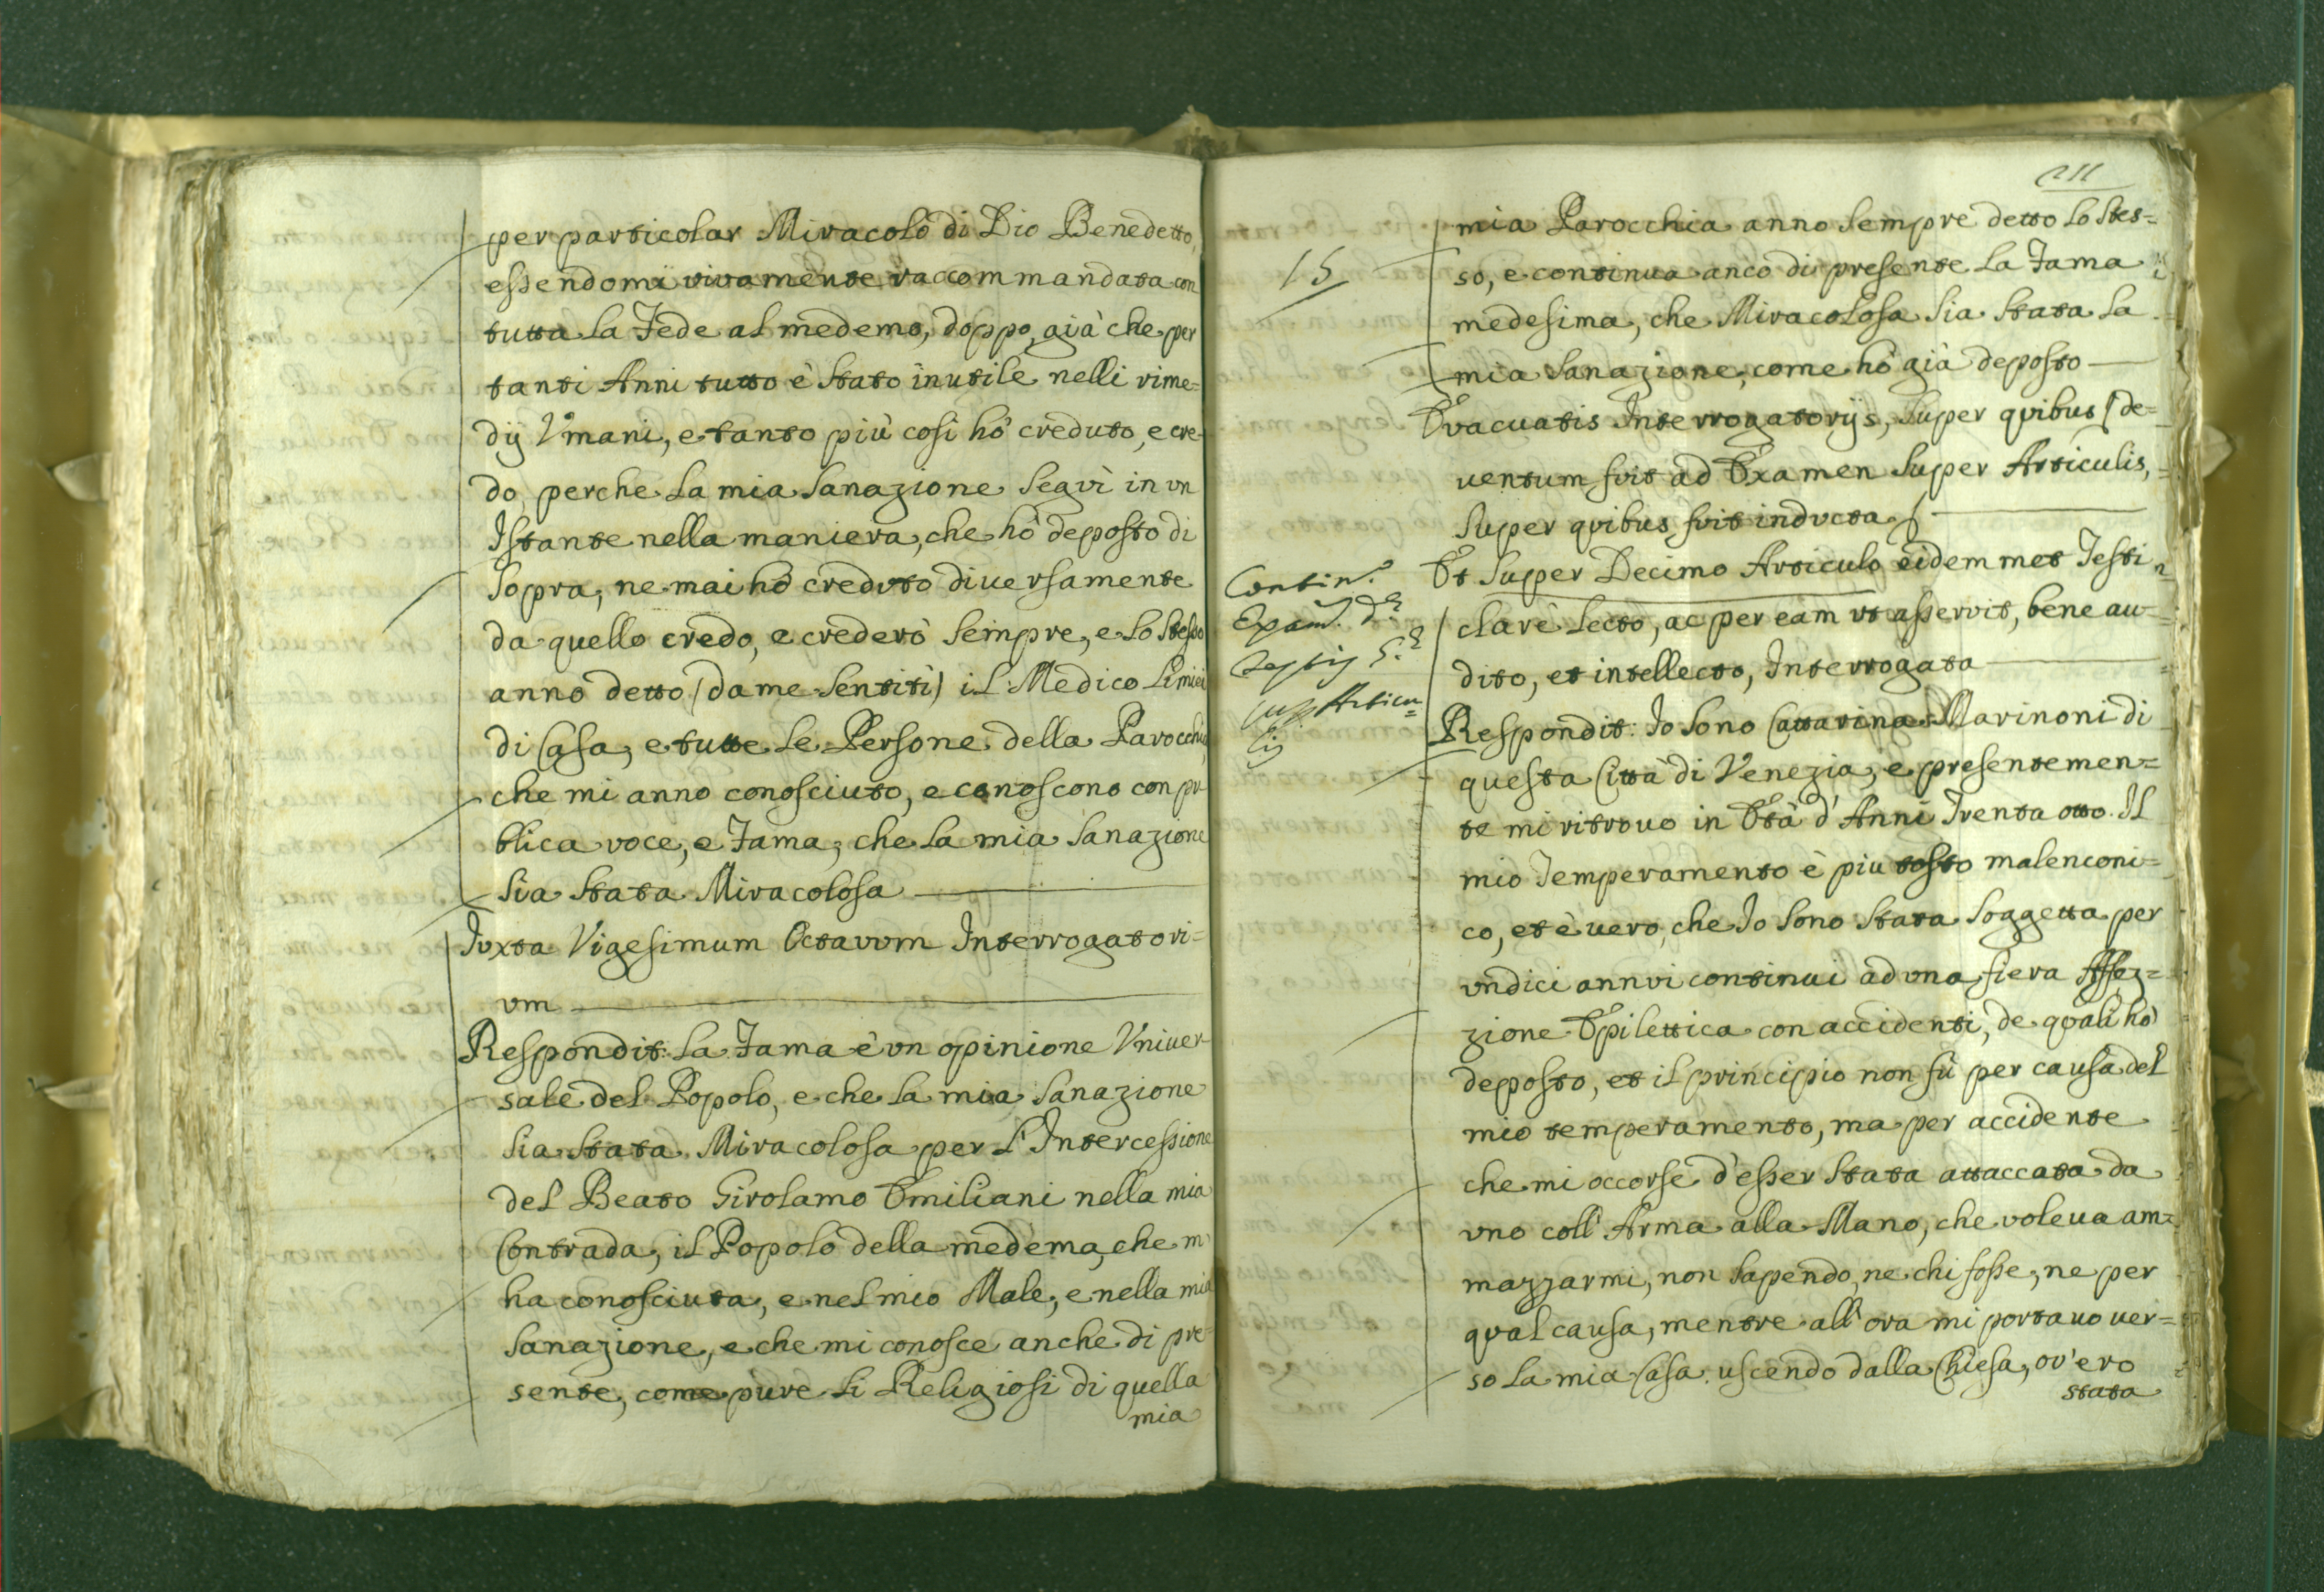 per particolar Miracolo di Dio Benedetto,
essendomi vivamente raccommandata con
tutta la Fede al medemo, doppo, già che per
tanti Anni tutto è stato inutile nelli rime=
dij Vmani, e tanto più così hò creduto, e cre-
do, perche la mia sanazione seguì in vn
Istante nella maniera, che hò deposto di
sopra, ne mai hò creduto diuersamente
da quello credo, e crederò sempre, e lo stesso
anno detto (da me sentiti) il Medico li miei
di Casa, e tutte le Persone della Parocchia,
che mi anno conosciuto, e conoscono con pu-
blica voce, e Fama, che la mia sanazione
sia stata Miracolosa
Iuxta Vigesimum Octavum Interrogatori=
um
Respondit: La Fama è vn opinione Vniuer-
sale del Popolo, e che la mia sanazione
sia stata Miracolosa per l'Intercessione
del Beato Girolamo Emiliani nella mia
Contrada, il Popolo della medèma, che m'
ha conosciuta, e nel mio Male, e nella mia
sanazione, e che mi conosce anche di pre=
sente, come pure li Religiosi di quella
mia
211
mia Parocchia anno sempre detto lo stes=
so, e continua anco di presente la Fama
medesima, che Miracolosa sia stata la
mia sanazione, come hò già deposto
Evacuatis Interrogatorijs, super quibus (de=
uentum fuit ad Examen super Articulis,
super quibus fuit inducta)
Et super Decimo Articulo eidem met Testi
clarè lecto, ac per eam ut asseruit, bene au=
dito, et intellecto, Interrogata
Respondit: Io sono Cattarina Marinoni di
questa Città di Venezia, e presentemen=
te mi ritrouo in Età d'Anni Trenta otto. Il
mio Temperamento è piu tosto malenconi=
co, et è uero, che Io sono stata soggetta per
vndici annui continui ad una fiera Affez=
zione Epilettica con accidenti, de quali hò
deposto, et il principio non fù per causa del
mio temperamento, ma per accidente
che mi occorse d'esser stata attaccata da
vno coll'Arma alla Mano, che voleua am=
mazzarmi, non sapendo, ne chi fosse, ne per
qual causa, mentre all'ora mi portauo uer=
so la mia Casa uscendo dalla Chiesa, ov'ero
stata
15
Contin.
Exam.
Testis 5.
sup. Articu=
lis